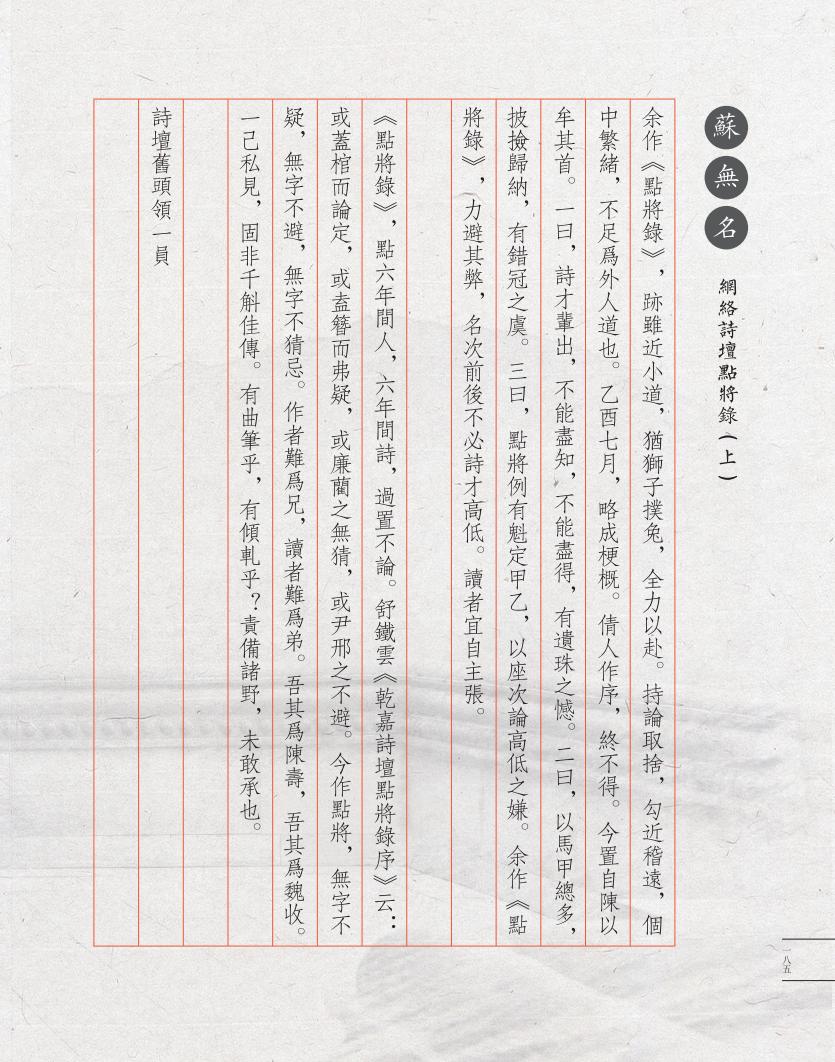 蘇無名
網絡詩壇點將錄（上）
余作《點將錄》，跡雖近小道，猶獅子撲兔，全力以赴。持論取捨，勾近稽遠，個
中繁緒，不足爲外人道也。乙酉七月，略成梗概。倩人作序，終不得。今置自陳以
牟其首。一曰，詩才輩出，不能盡知，不能盡得，有遺珠之憾。二曰，以馬甲總多，
披撿歸納，有錯冠之虞。三曰，點將例有魁定甲乙，以座次論高低之嫌。余作《點
將錄》，力避其弊，名次前後不必詩才高低。讀者宜自主張。
《點將錄》，點六年間人，六年間詩，過置不論。舒鐵雲《乾嘉詩壇點將錄序》云：
或蓋棺而論定，或盍簪而弗疑，或廉藺之無猜，或尹邢之不避。今作點將，無字不
疑，無字不避，無字不猜忌。作者難爲兄，讀者難爲弟。吾其爲陳壽，吾其爲魏收。
一己私見，固非千斛佳傳。有曲筆乎，有傾軋乎？責備諸野，未敢承也。
詩壇舊頭領一員
一八五